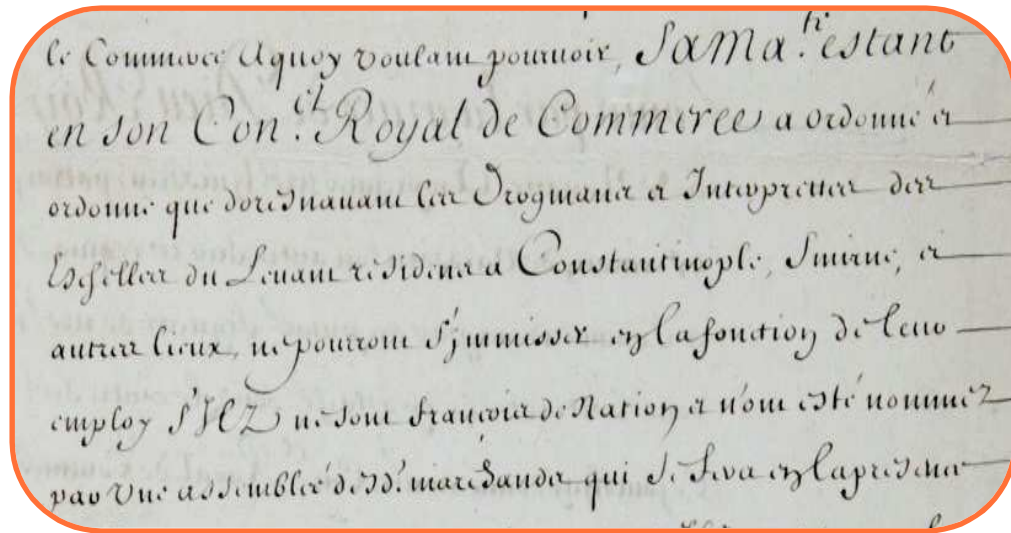 le Commerce Aquoy voulant pourvoir, SaMa.té estant
en son Con.el Royal de Commerce a ordonné et
ordonne que doresnavant les Drogmans et Interprettes des
Eschelles du Levant residens a Constantinople, Smirne, et
autres lieux, ne pourront s'jmmisser en la fonction de leur
employ s'ILZ ne sont francois de Nation et n'ont esté nommez
par Une assemblée desd. marchands qui se fera en la presence